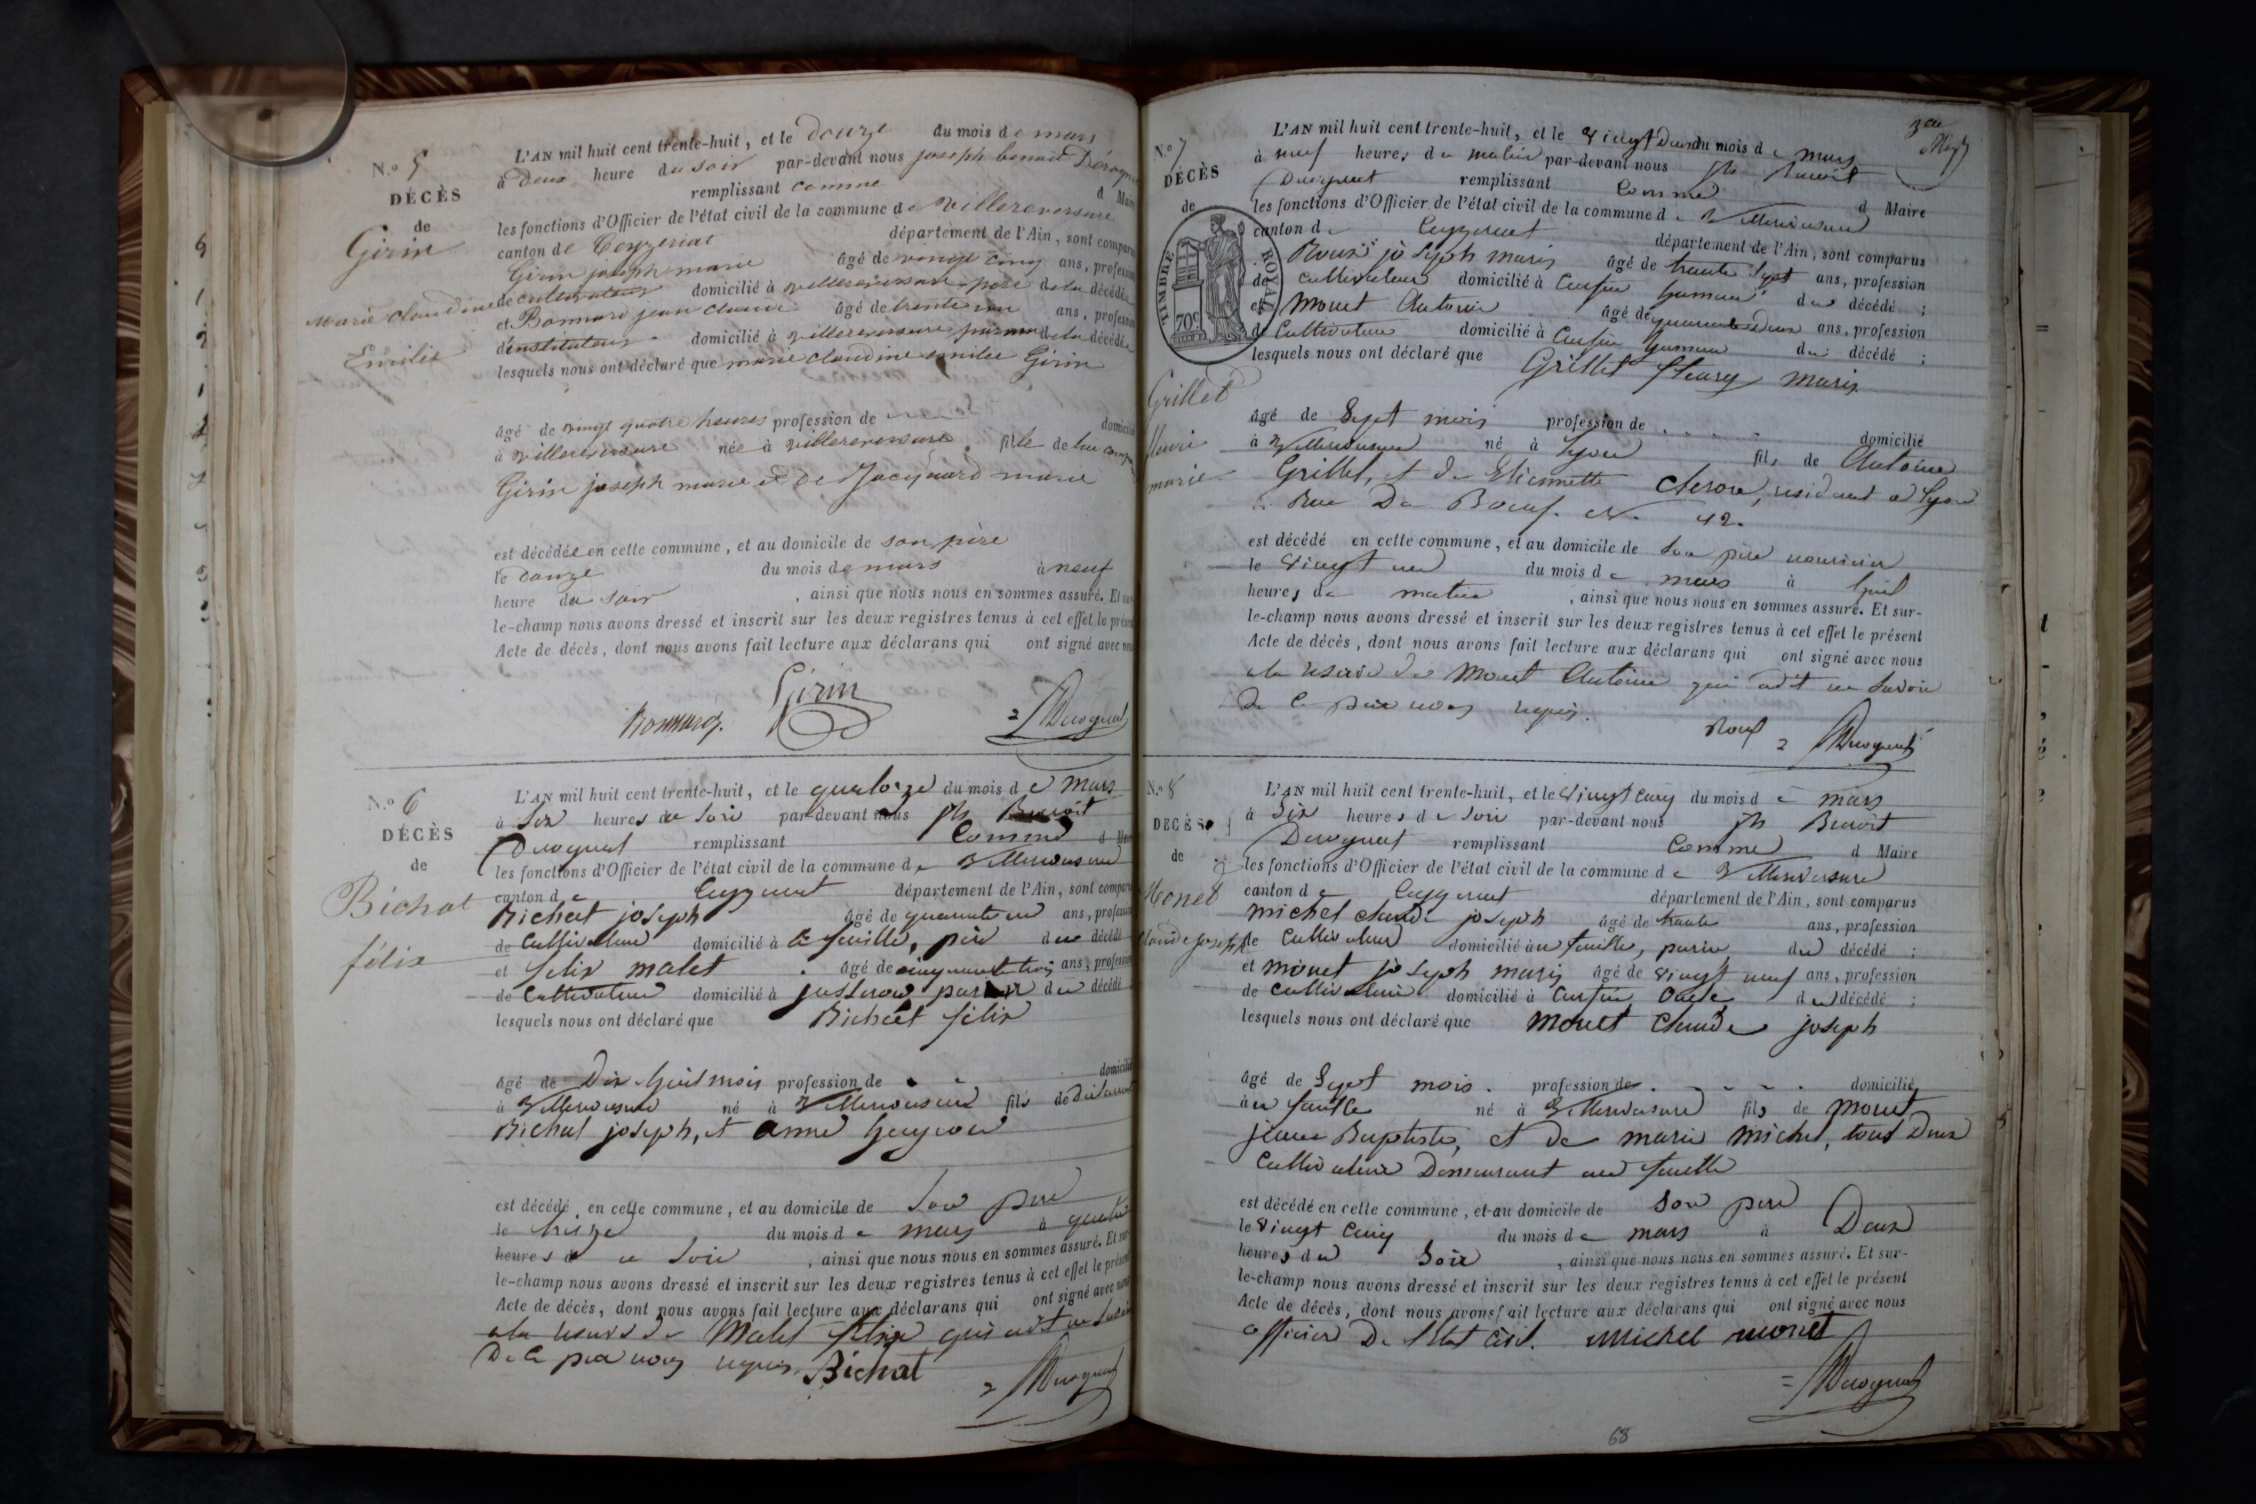 N.o 5
DÉCÈS
de
Girin
Marie Claudine
Emilie
L'AN mil huit cent trente-huit, et le douze du mois de mars
à deux heure du soir par-devant nous joseph benoit
remplissant comme d Maire
les fonctions d'Officier de l'état civil de la commune de villereversure
canton de Ceyzeriat département de l'Ain, sont comparus
Girin joseph marie âgé de vingt cinq ans, profession
de cultivateur domicilié à villereversure père de la décédée
et Bonnard jean claude âgé de trente un ans, profession
d'instituteur domicilié à villereversure parain de la décédée
lesquels nous ont déclaré que marie claudine emilie Girin
âgé de vingt quatre heures profession de domicilié
à villereversure née à villereversure fille de
Girin joseph marie et de Jacquard marie
est décédée en cette commune, et au domicile de son père
le douze du mois de mars à neuf
heure du soir, ainsi que nous nous en sommes assuré. Et sur-
le-champ nous avons dressé et inscrit sur les deux registres tenus à cet effet le présent
Acte de décès, dont nous avons fait lecture aux déclarans qui ont signé avec nous
Girin
Bonnard
N.o 6
DÉCÈS
de
Bichat
félix
L'AN mil huit cent trente-huit, et le quatorze du mois de mars
à six heures du soir par-devant nous jh Benoit
remplissant Comme d
les fonctions d'Officier de l'état civil de la commune de Villereversure
canton de Ceyzeriat département de l'Ain, sont comparus
Bichat joseph âgé de quarante un ans, profession
de Cultivateur domicilié à la feuille, père du décédé
et félix malet âgé de cinquante trois ans, profession
de Cultivateur domicilié à parain du décédé
lesquels nous ont déclaré que Bichat félix
âgé de Dix huit mois profession de domicilié
à Villereversure né à Villereversure fils de
Bichat joseph, et anne
est décédé en cette commune, et au domicile de son père
le treize du mois de mars à quatre
heures du soir, ainsi que nous nous en sommes assuré. Et sur-
le-champ nous avons dressé et inscrit sur les deux registres tenus à cet effet le présent
Acte de décès, dont nous avons fait lecture aux déclarans qui ont signé avec nous
a la reserve de Malet félix qui a dit ne savoir
De ce par nous requis. Bichat
N.o 7
DÉCÈS
de
TIMBRE ROYAL
70c
Grillet
fleuri
marie
L'AN mil huit cent trente-huit, et le vingt Deux du mois de mars
à neuf heures du matin par-devant nous jh Benoit
remplissant Comme d Maire
les fonctions d'Officier de l'état civil de la commune de Villereversure
canton de Ceyzeriat département de l'Ain, sont comparus
Roux joseph marie âgé de trente sept ans, profession
de cultivateur domicilié à du décédé;
et Monet Antoine âgé de quarante Deux ans, profession
de Cultivateur domicilié à du décédé;
lesquels nous ont déclaré que Grillet fleury marie
âgé de Sept mois profession de domicilié
à Villereversure né à Lyon fils de Antoine
Grillet, et de Etiennette résidant à Lyon
Rue Du Bœuf. N. 42.
est décédé en cette commune, et au domicile de son père nouricier
le vingt un du mois de mars à huit
heures du matin, ainsi que nous nous en sommes assuré. Et sur-
le-champ nous avons dressé et inscrit sur les deux registres tenus à cet effet le présent
Acte de décès, dont nous avons fait lecture aux déclarans qui ont signé avec nous
a la reserve de Monet Antoine qui a dit ne savoir
De ce par nous requis.
Roux
N.o 8
DÉCÈS
de
Monet
Claude joseph
L'AN mil huit cent trente-huit, et le vingt cinq du mois de mars
à six heures du soir par-devant nous jh Benoit
remplissant Comme d Maire
les fonctions d'Officier de l'état civil de la commune de Villereversure
canton de Ceyzeriat département de l'Ain, sont comparus
michel claude joseph âgé de trente ans, profession
de cultivateur domicilié à la feuille, parain du décédé;
et monet joseph marie âgé de vingt neuf ans, profession
de cultivateur domicilié à Oncle du décédé;
lesquels nous ont déclaré que monet Claude joseph
âgé de Sept mois. profession de domicilié
à la feuille né à Villereversure fils de monet
jean Baptiste, et de marie michel, tous Deux
Cultivateur Demeurant à la feuille
est décédé en cette commune, et au domicile de son père
le vingt cinq du mois de mars à Deux
heures du Soir, ainsi que nous nous en sommes assuré. Et sur-
le-champ nous avons dressé et inscrit sur les deux registres tenus à cet effet le présent
Acte de décès, dont nous avons fait lecture aux déclarans qui ont signé avec nous
officier De l'Etat Civil. Michel monet
68